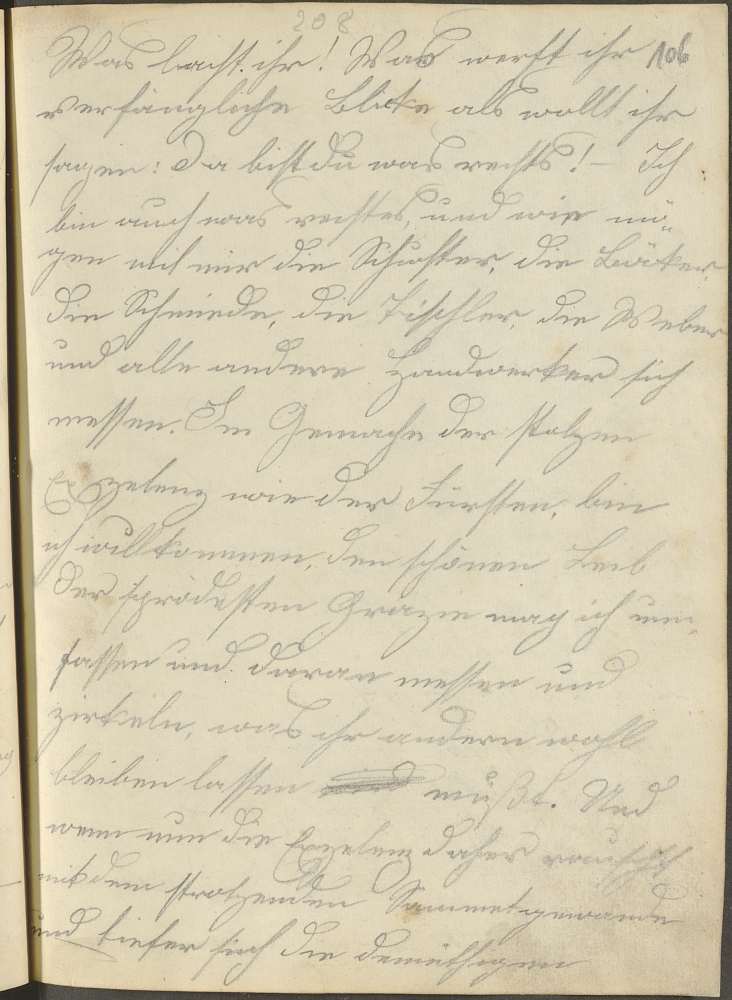 208
106
Was lacht ihr! Was werft ihr
verfängliche Blicke als wollt ihr
sagen: Da bist du was rechts! – Ich
bin auch was rechtes, und wie mö„
gen mit mir die Schuster, die Bäcker,
die Schmiede, die Tischler, die Weber
und alle andere Handwerker sich
messen. Im Gemache der stolzen
Exzelenz wie der Fürsten, bin
ich willkommen, den schönen Leib
der sprödesten Grazie mag ich um„
fassen und daran messen und
zirkeln, was ihr andern wohl
bleiben lassen müßt. Und
wenn nun die Exzelenz daher rauscht
mit dem strotzenden Sammetgewande
und tiefer sich die demüthigen